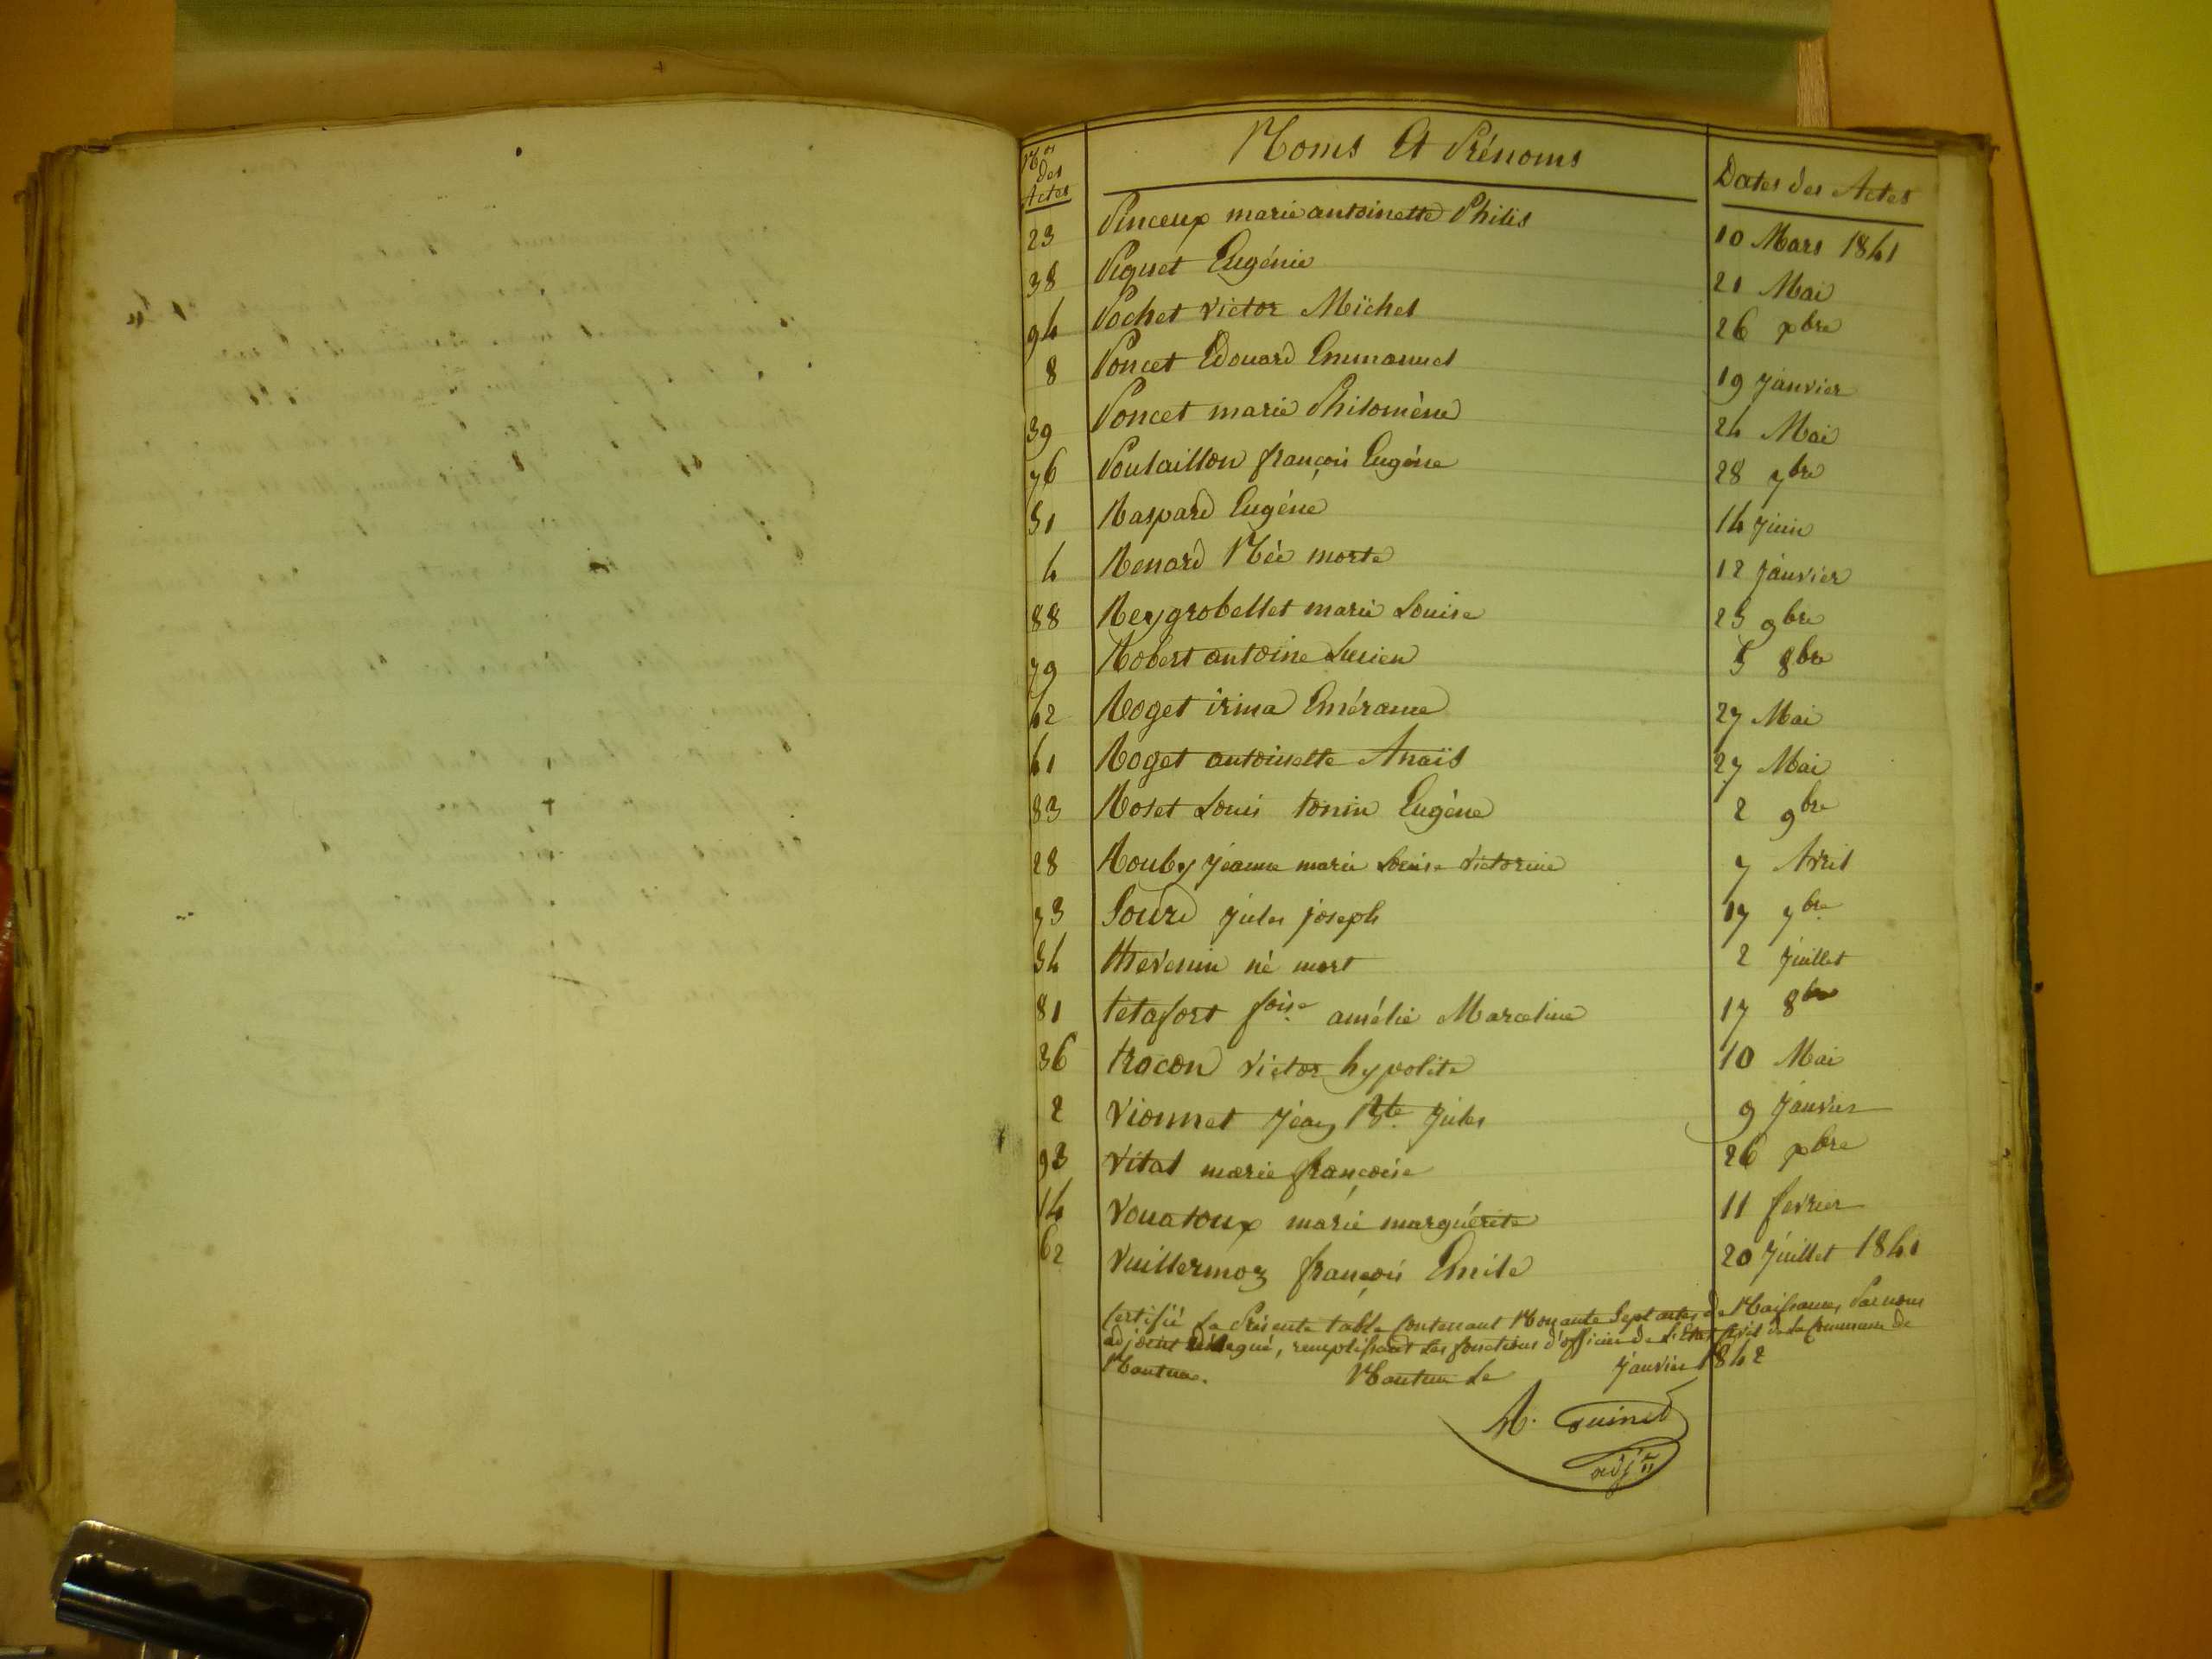 Nos des Actes Noms Et Prénoms Dates des Actes
23 Pinceux marie antoinette Philis 10 Mars 1841
38 Piquet Eugénie 21 Mai
94 Pochet victor Michel 26 xbre
8 Poncet Edouard Emmanuel 19 janvier
39 Poncet marie Philomène 24 Mai
76 Poulaillon françois Eugène 28 7bre
51 Raspard Eugène 14 juin
4 Renard Née morte 12 janvier
88 Reygrobellet marie Louise 23 9bre
79 Robert antoine Lucien 5 8bre
42 Roget irma Emérame 27 Mai
41 Roget antoinette Anaïs 27 Mai
83 Rolet Louis tonin Eugène 2 9bre
28 Rouby jeanne marie Louise victorine 7 Avril
73 Sourd jules joseph 17 7bre
54 thevenin né mort 2 juillet
81 tétafort foise amélie Marceline 17 8bre
36 tracon victor hypolite 10 Mai
2 vionnet jean Bte jules 9 janvier
93 vital marie françoise 26 xbre
14 vouatoux marie marguérite 11 fevrier
62 vuillermoz françois Emile 20 juillet 1841
Certifié La Présente table Contenant Nonante Sept actes de Naissances Par nous
adjoint délégué, remplissant Les fonctions d'officier de L'Etat Civil de La Commune de
Nantua. Nantua Le janvier 1842
guinet
adjt